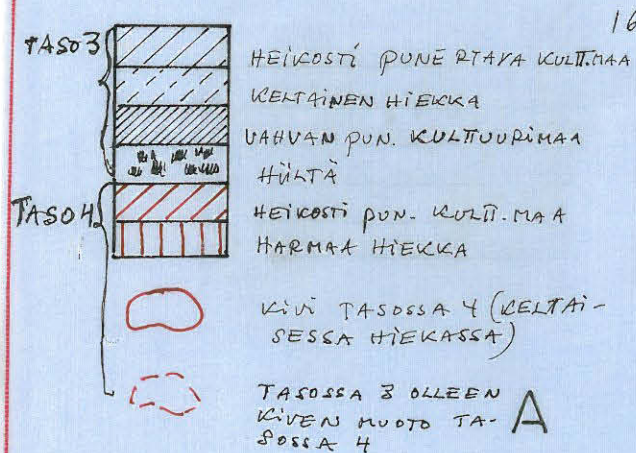 16
TASO 3
HEIKOSTI PUNERTAVA KULTT.MAA
KELTAINEN HIEKKA
VAHVAN PUN. KULTTUURIMAA
HIILTÄ
TASO 4
HEIKOSTI PUN. KULTT.MAA
HARMAA HIEKKA
KIVI TASOSSA 4 (KELTAI-
SESSA HIEKASSA)
TASOSSA 3 OLLEEN
KIVEN MUOTO TA-
SOSSA 4
A